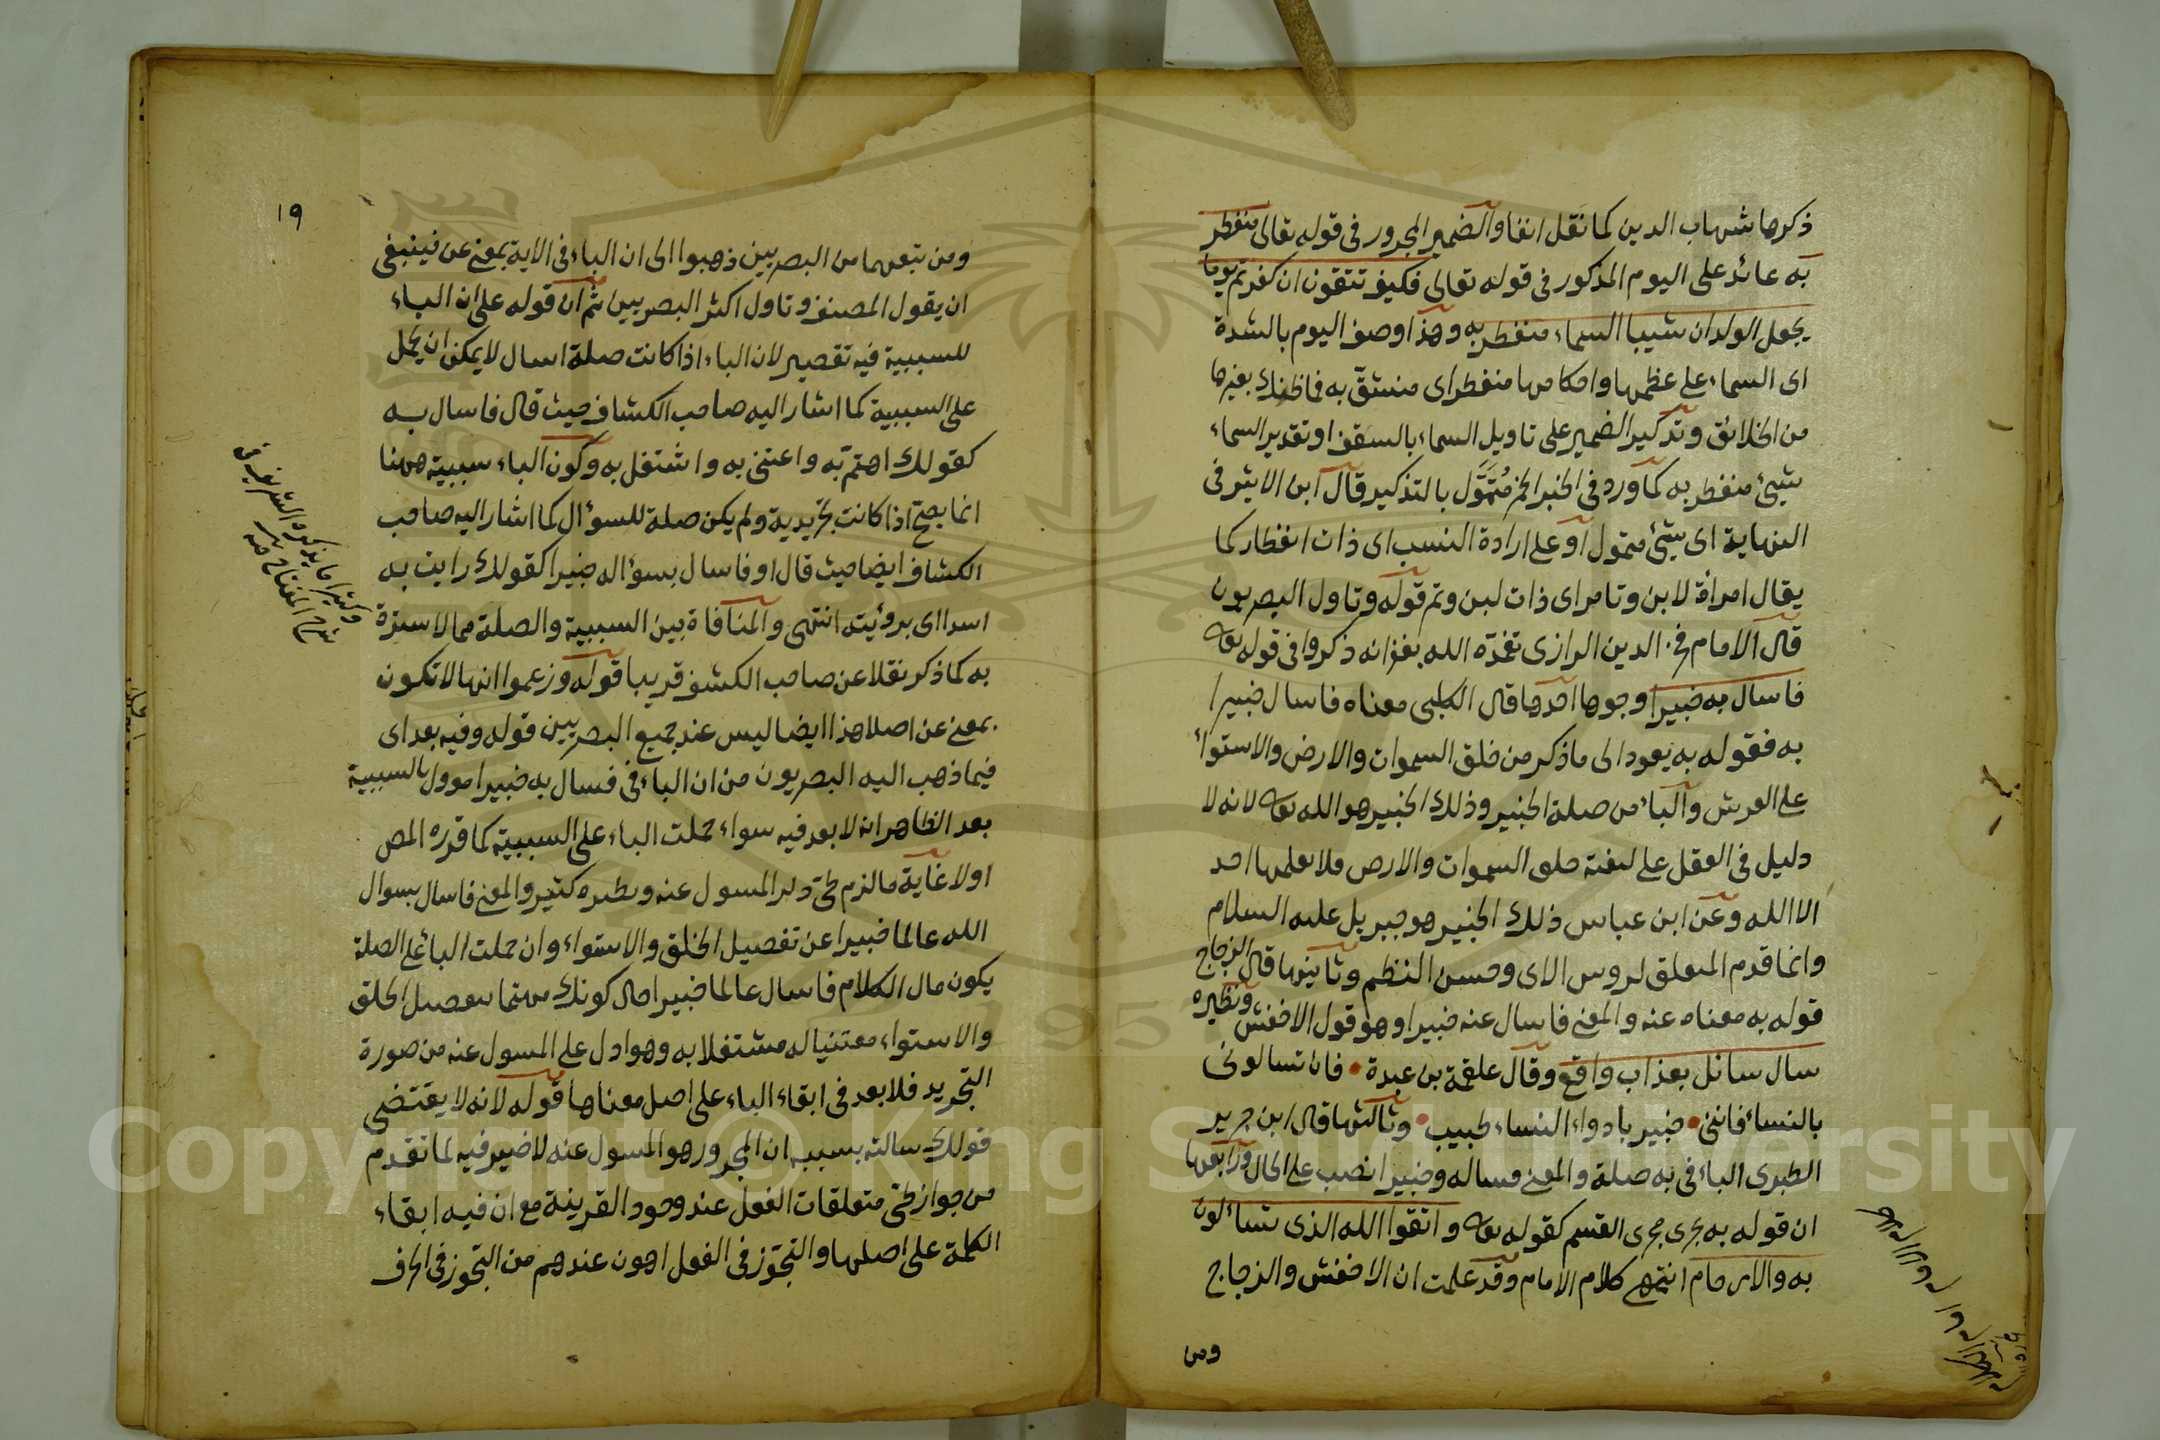 ذكرها شهاب الدين كما نقل انفا والضمير المجرور فى قوله تعالى منفطر
به عائد على اليوم المذكور فى قوله تعالى فكيف تتقون ان كفرتم يوما
يجعل الولدان شيبا السماء منفطر به وهذا وصف اليوم بالشدة
اى السماء على عظمها واحكامها منفطر اى منشق به فما ظنك بغيرها
من الخلائق وتذكير الضمير على تاويل السماء بالسقف او تقدير السماء
شيئ منفطر به كما ورد فى الخبر الخ مُتَمَوَّل بالتذكير قال ابن الاثير فى
النهاية اى شيئ متمول او على ارادة النسب اى ذات انفطار كما
يقال امراة لابن وتامر اى ذات لبن وتم قوله وتاول البصريون
قال الامام فخر الدين الرازى تغمّده الله بغفرانه ذكروا فى قوله تعه
فاسال به خبيرا وجوها احدها قال الكلبى معناه فاسال خبيرا
به فقوله به يعود الى ما ذكر من خلق السموات والارض والاستواء
على العرش والباء من صلة الخبير وذلك الخبير هو الله تعه لانه لا
دليل فى العقل على كيفية خلق السموات والارض فلا يعلمها احد
الا الله وعن ابن عباس ذلك الخبير هو جبريل عليه السلام
وانما قدم المتعلق لروس الاى وحسن النظم وثانيها قال الزجاج
قوله به معناه عنه والمعنى فاسال عنه خبيرا وهو قول الاخفش ونظيره
سال سائل بعذاب واقع وقال علقمة بن عبدة • فان تسالونى
بالنساء فاننى • خبير بادواء النساء طبيب • وثالثها قال ابن جرير
الطبرى الباء فى به صلة والمعنى فساله وخبيرا نصب على الحال ورابعها
ان قوله به يجرى مجرى القسم كقوله تعه واتقوا الله الذى تساءلون
به والارحام انتهى كلام الامام وقد علمت ان الاخفش والزجاج
ومن
١٩
ومن تبعهما من البصريين ذهبوا الى ان الباء فى الاية بمعنى عن فينبغى
ان يقول المصنف وتاول اكثر البصريين ثم ان قوله على ان الباء
للسببية فيه تقصير لان الباء اذا كانت صلة اسال لا يمكن ان يحمل
على السببية كما اشار اليه صاحب الكشاف حيث قال فاسال به
كقولك اهتمّ به واعتنى به واشتغل به وكون الباء سببية ههنا
انما يصح اذا كانت تجريدية ولم يكن صلة للسؤال كما اشار اليه صاحب
الكشاف ايضا حيث قال او فاسال بسؤاله خبيرا كقولك رايت به
اسدا اى برؤيته انتهى والمنافاة بين السببية والصلة مما لا سترة
به كما ذكر نقلا عن صاحب الكشف قريبا قوله وزعموا انها لا تكون
بمعنى عن اصلا هذا ايضا ليس عند جميع البصريين قوله وفيه بعد اى
فيما ذهب اليه البصريون من ان الباء فى فسال به خبيرا موول بالسببية
بعد الظاهر انه لا بعد فيه سواء حملت الباء على السببية كما قرره المص
اولا غاية ما لزم طى ذكر المسول عنه ونظيره كثير والمعنى فاسال بسوال
الله عالما خبيرا عن تفصيل الخلق والاستواء وان حملت الباء على الصلة
يكون مال الكلام فاسال عالما خبيرا حال كونك مهتما بتفصيل الخلق
والاستواء معتنيا له مشتغلا به وهو ادل على المسول عنه من صورة
التجريد فلا بعد فى ابقاء الباء على اصل معناها قوله لانه لا يقتضى
قولك سالته بسببه ان المجرور هو المسول عنه لا ضير فيه لما تقدم
من جواز طى متعلقات الفعل عند وجود القرينة مع ان فيه ابقاء
الكلمة على اصلها والتجوّز فى الفعل اهون عندهم من التجوز فى الحرف
وكثيرا ما يذكره الشريف فى
شرح المفتاح منه
Copyright © King Saud University
1957